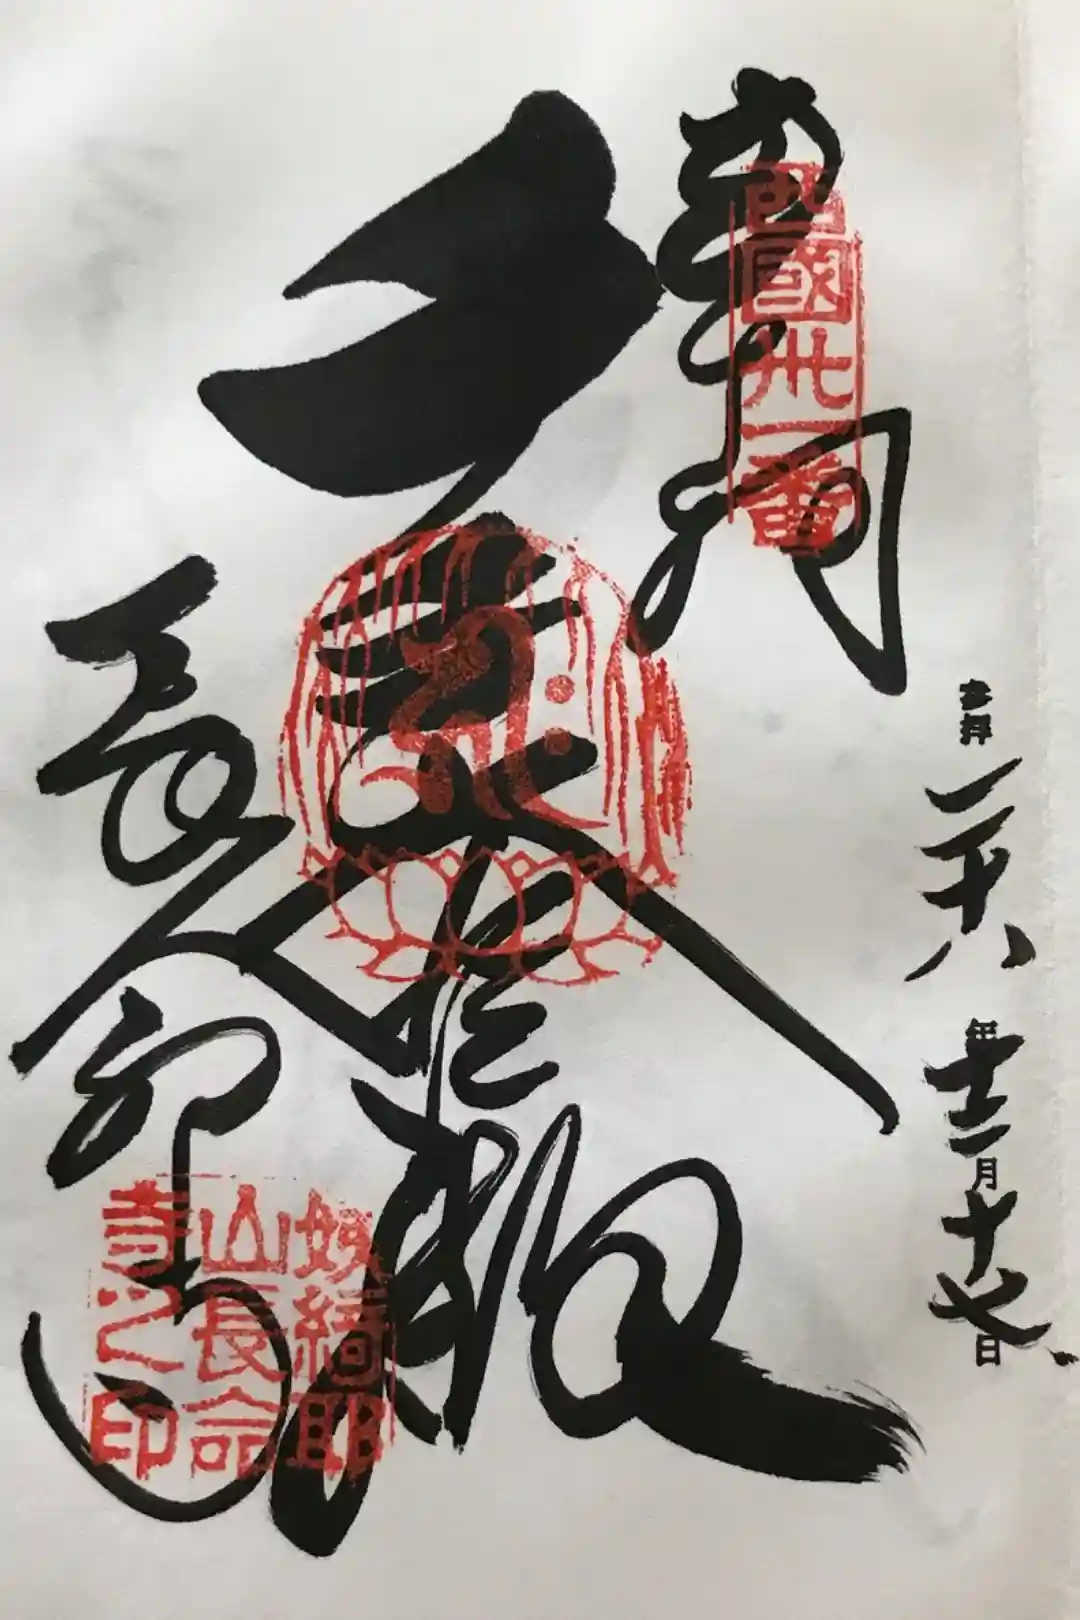 奉拝
西國卅一番
大悲殿
長命寺
姨綺耶
山長命
寺之印
参拝 二十八年十二月十七日